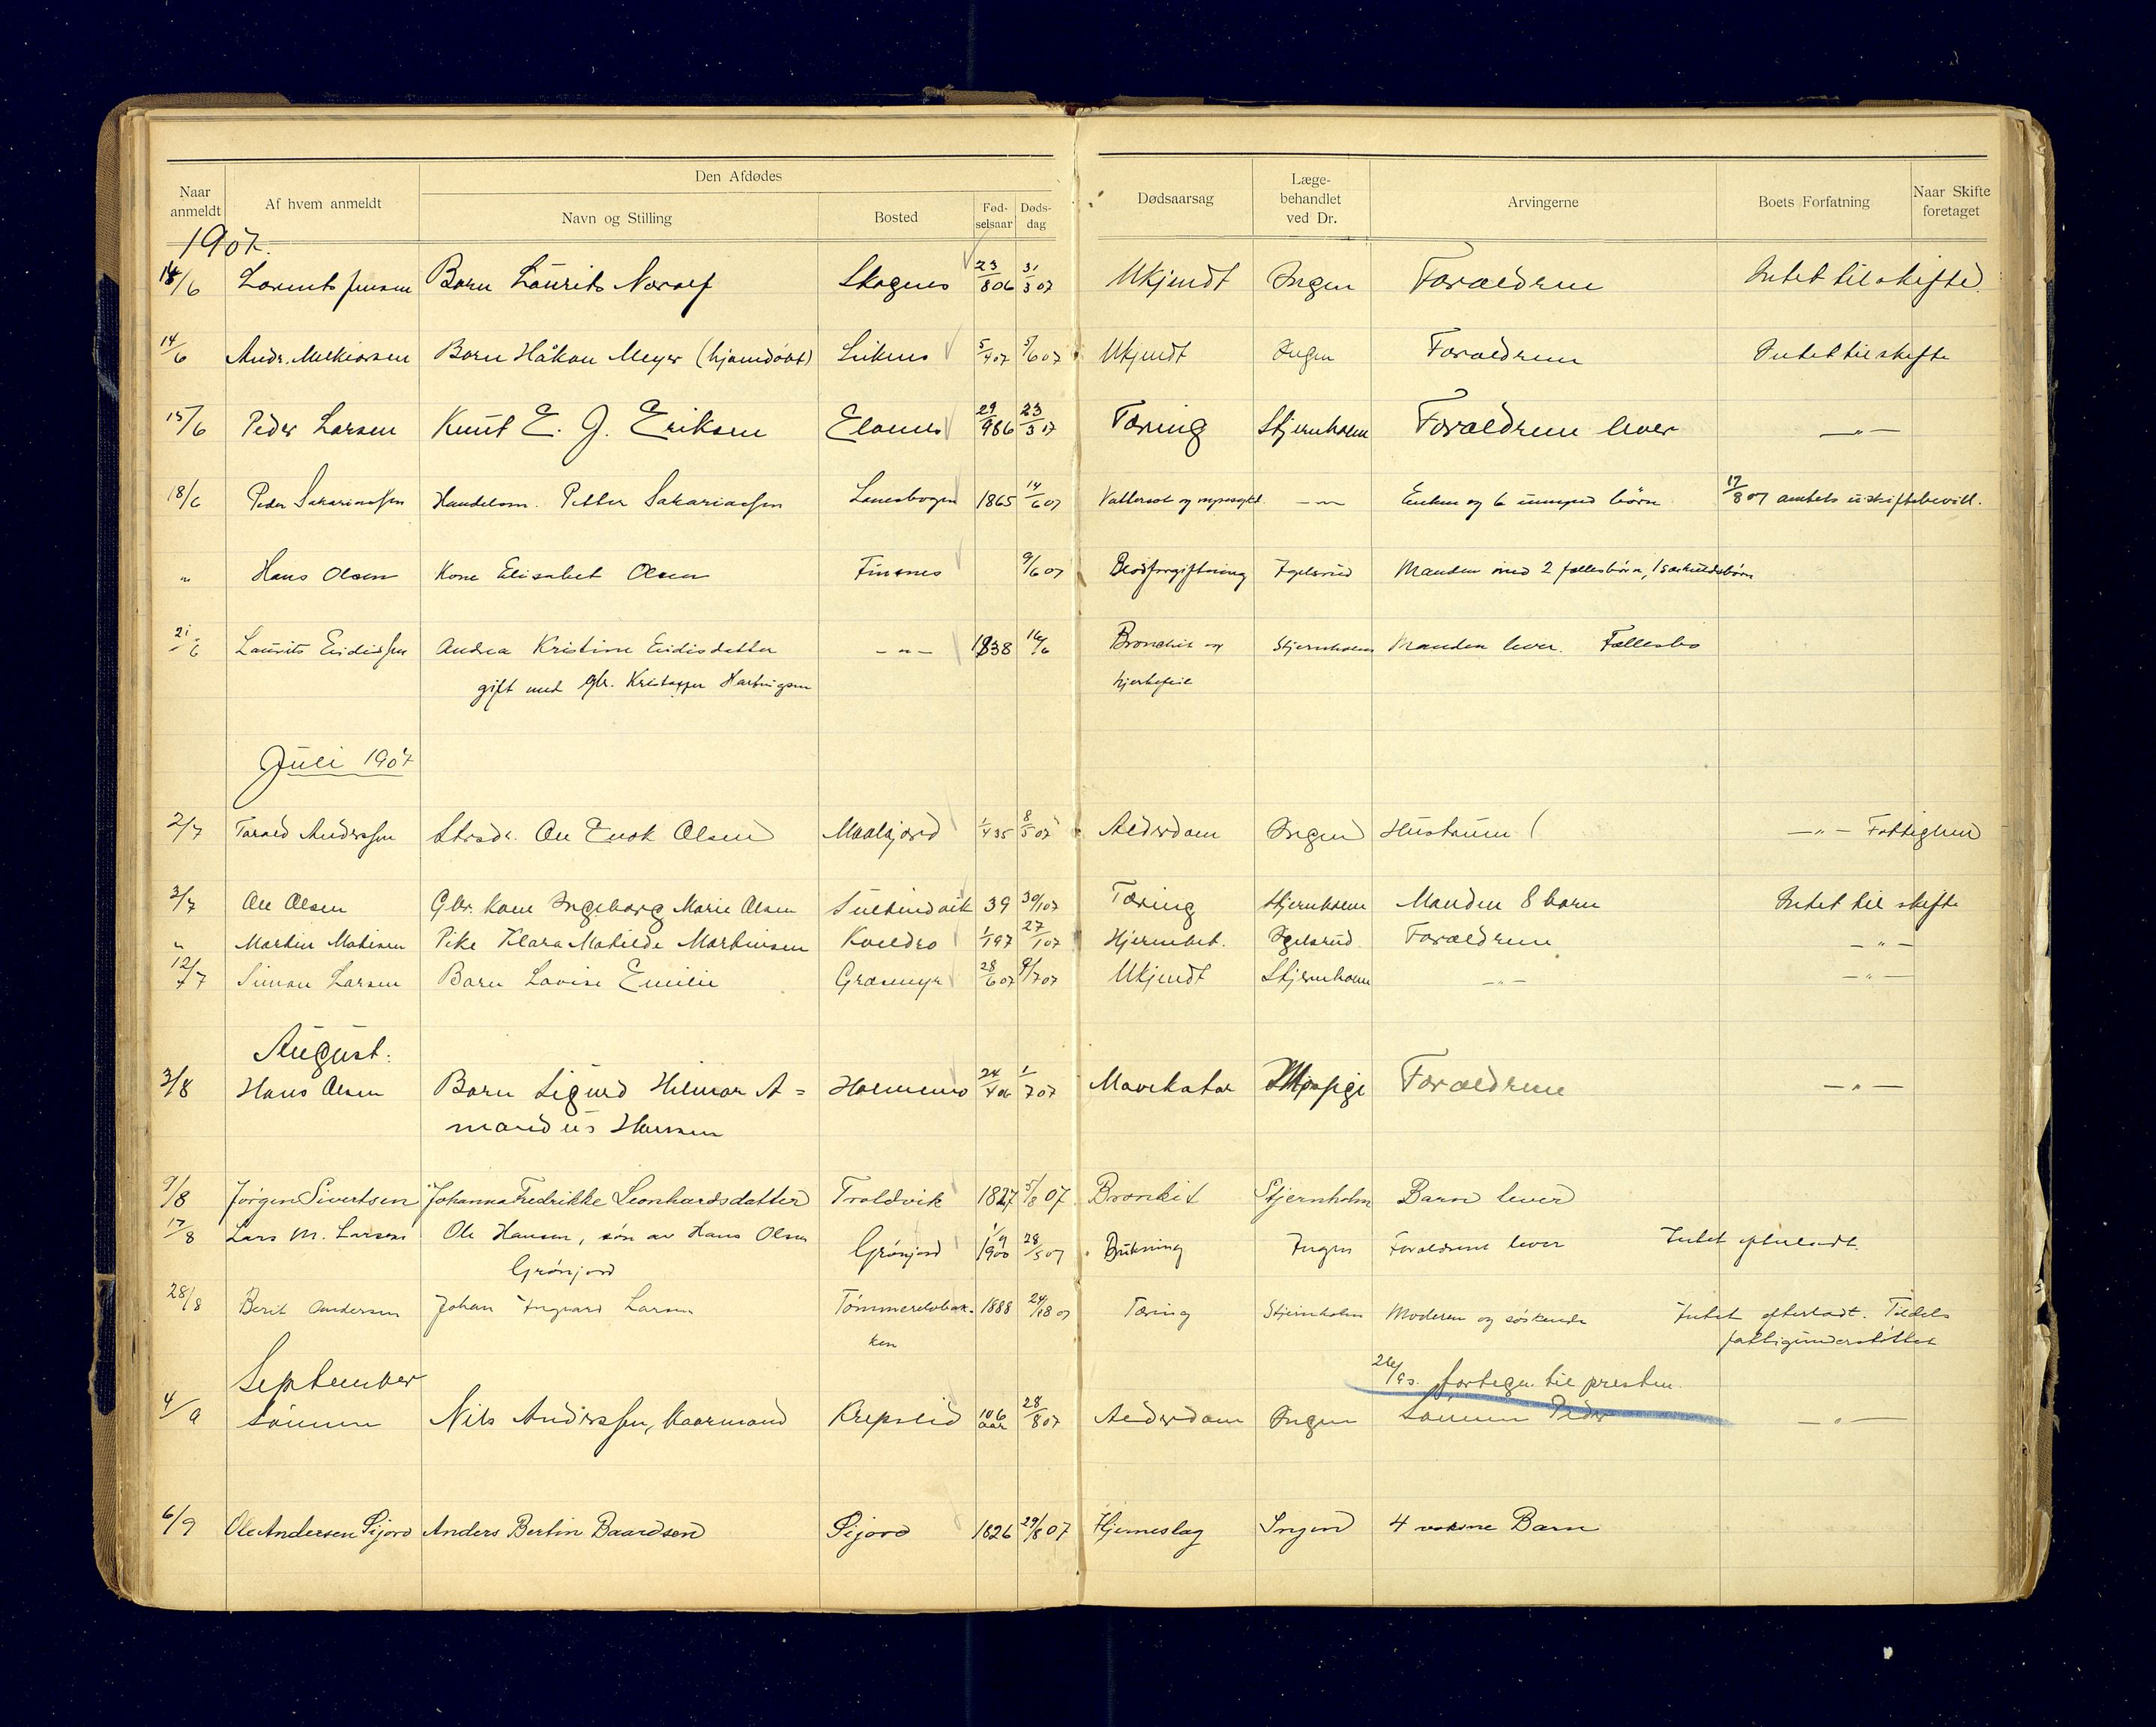 Den Afdødes
Naar anmeldt Af hvem anmeldt Navn og Stilling Bosted Fød-selsaar Døds-dag Dødsaarsag Læge-behandlet ved Dr. Arvingerne Boets Forfatning Naar Skifte foretaget
1907.
14/6 Lorents Jensen Barn Laurits Noralf Skognes 23/8 06 31/3 07 Ukjendt Ingen Forældrene Intet til skifte
14/6 Andr. Melkiorsen Barn Håkon Meyer (hjemdøbt) 5/4 07 5/6 07 Ukjendt Ingen Forældrene Intet til skifte
15/6 Peder Larsen Knut E. J. Eriksen 29/9 86 23/3 17 Tæring Stjernholm Forældrene lever —"—
18/6 Peder Sakariassen Handelsm. Petter Sakariassen 1865 14/6 07 Vattersot og —"— Enken og 6 børn 17/8 07 amtets uskiftebevill.
" Hans Olsen Kone Elisabet Olsen Finsnes 9/6 07 Blodforgiftning Igelsrud Manden med 2 fællesbørn, 1 særkuldsbørn
21/6 Laurits Eidissen Andrea Kristine Eidisdatter —"— 1838 16/6 Bronchit og Stjernholm Manden lever. Fællesbo
gift med gbr. Kristoffer Hartvigsen hjertefeil
Juli 1907
2/7 Torald Anderssen Strsdr. Ole Enok Olsen Maalsjord 1/4 35 8/5 07 Alderdom Ingen Hustruen —"— Fattighus
3/7 Ole Olsen Gbr. kone Ingeborg Marie Olsen Sultindvik 39 30/1 07 Tæring Stjernholm Manden 8 barn Intet til skifte
" Martin Matisen Pike Klara Matilde Martinsen 1/1 97 27/1 07 Hjernebet. Igelsrud Forældrene —"—
12/7 Simon Larsen Barn Lovise Emilie Grasmyr 28/6 07 9/7 07 Ukjendt Stjernholm —"— —"—
August.
3/8 Hans Olsen Barn Sigurd Hilmar A= Holmenes 24/4 06 1/7 07 Mavekatar Forældrene —"—
mandus Hansen
9/8 Jørgen Sivertsen Johanna Fredrikke Leonhardsdatter Troldvik 1827 5/8 07 Bronkit Stjernholm Barn lever
17/8 Lars M. Larsen Ole Hansen, søn av Hans Olsen Grønjord 1/9 1900 28/5 07 Drukning Ingen Forældrene lever Intet efterladt.
Grønjord
28/8 Berit Andersen Johan Ingvard Larsen Tømmerelvbak- 1888 24/8 07 Tæring Stjernholm Moderen og søskende Intet efterladt. Tildels
ken fattigunderstøttet
September 26/9 s. fortegn. til presten.
4/9 Sønnen Nils Anderssen, kaarmand Krepslid 106 aar 28/8 07 Alderdom Ingen Sønnen Peder —"—
6/9 Ole Andersen Gijord Anders Bertin Baardsen Gijord 1826 29/8 07 Hjerneslag Ingen 4 voksne Barn